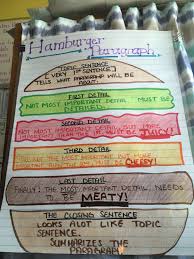 Hamburger
Paragraph.
TOPIC SENTENCE
(VERY 1ST SENTENCE)
TELLS WHAT PARAGRAPH WILL BE
ABOUT.
FIRST DETAIL
NOT MOST IMPORTANT DETAIL. MUST BE
SECOND DETAIL
NOT MOST IMPORTANT BUT
JUICY!
THIRD DETAIL
THE MOST IMPORTANT BUT
CHEESY!
LAST DETAIL
FINALLY! THE MOST IMPORTANT DETAIL. NEEDS
TO BE MEATY!
THE CLOSING SENTENCE
LOOKS ALOT LIKE TOPIC
SENTENCE.
SUMMARIZES THE
PARAGRAPH